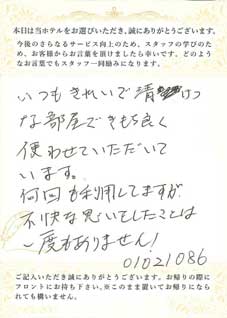 本日は当ホテルをお選びいただき、誠にありがとうございます。
今後のさらなるサービス向上のため、スタッフの学びのため、お客様からお言葉を頂けましたら幸いです。どのようなお言葉でもスタッフ一同励みになります。
いつもきれいで清けつ
な部屋できもち良く
使わせていただいて
います。
何回も利用してますが
不快な思いでしたことは
一度もありません!
01021086
ご記入いただき誠にありがとうございます。お帰りの際に
フロントにお持ち下さい。※このまま置いてお帰りになら
れても構いません。